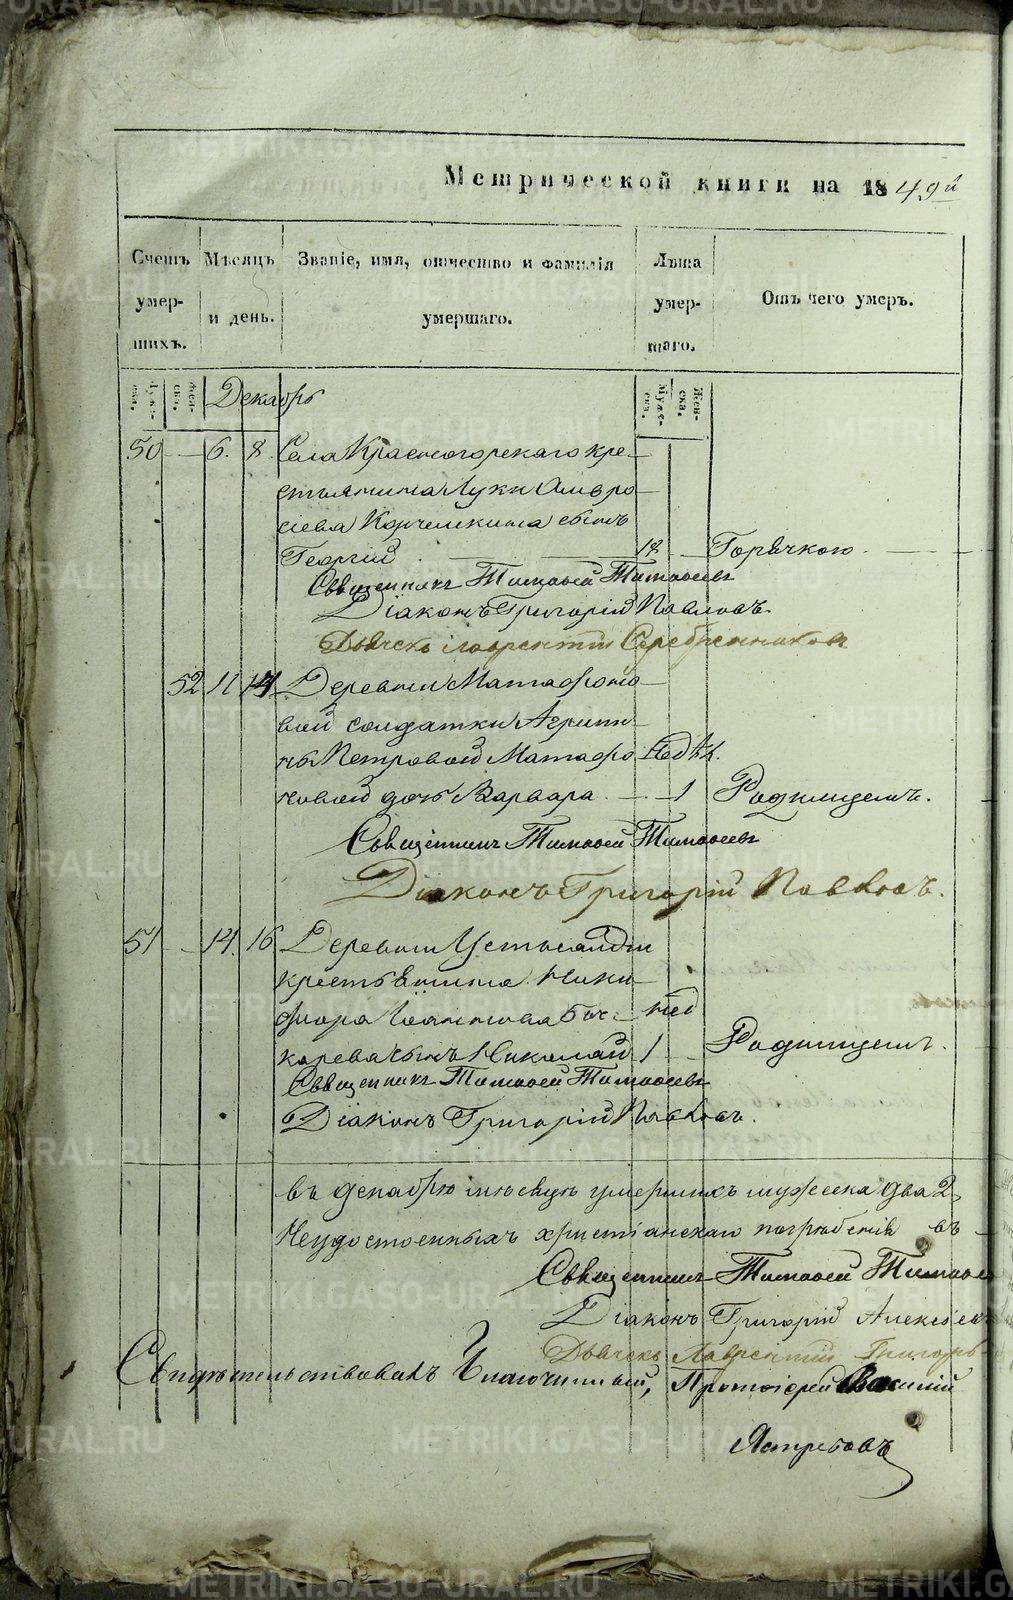 Метрической книги на 1849й
Счетъ умер- шихъ.
Мѣсяцъ и день.
Званіе, имя, отчество и фамилія умершаго.
Лѣта умер- шаго.
Отъ чего умеръ.
Муже- ска. Жен- ска.
Муже- ска. Жен- ска.
Декабрь
50 6. 8. Села Красногорскаго кре-
стьянина Луки Амвро-
сіева Корчемкина сынъ
Георгій 18 Горячкою
Священникъ Тимофей Тимофеевъ
Діаконъ Григорій Павловъ.
Дьячекъ Лаврентій Серебренниковъ
52 11 14 Деревни Матафоно-
вой солдатки Агрипи-
ны Петровой Матафо- нед ѣл.
новой дочь Варвара. 1 Родимцемъ.
Священникъ Тимофей Тимофеевъ
Діаконъ Григорій Павловъ.
51 14. 16 Деревни Устьсалды
крестьянина Ники-
фора Іоаннова Бы- нед
карева сынъ Николай 1 Родимцемъ.
Священникъ Тимофей Тимофеевъ
Діаконъ Григорій Павловъ.
въ декабрѣ мѣсяцѣ умершихъ мужеска два 2,
Неудостоенныхъ христіанскаго погребенія въ
Священникъ Тимофей Тимофе
Діаконъ Григорій Алексѣев
Дьячекъ Лаврентій Григорь
Свидѣтельствовалъ Благочинный, Протоіерей Василій
Ястребовъ
METRIKI.GASO-URAL.RU